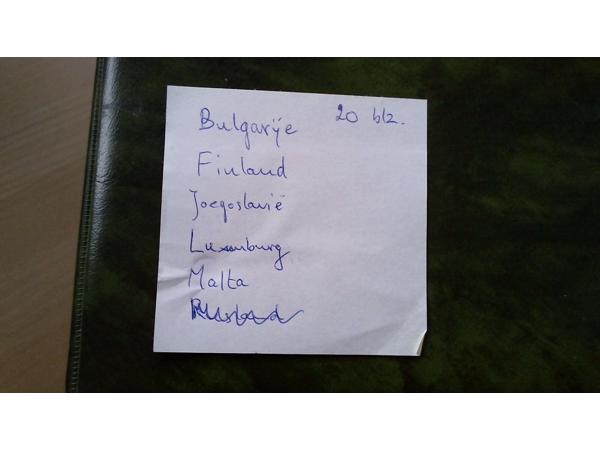 Bulgarije 20 blz.
Finland
Joegoslavië
Luxemburg
Malta
Rusland